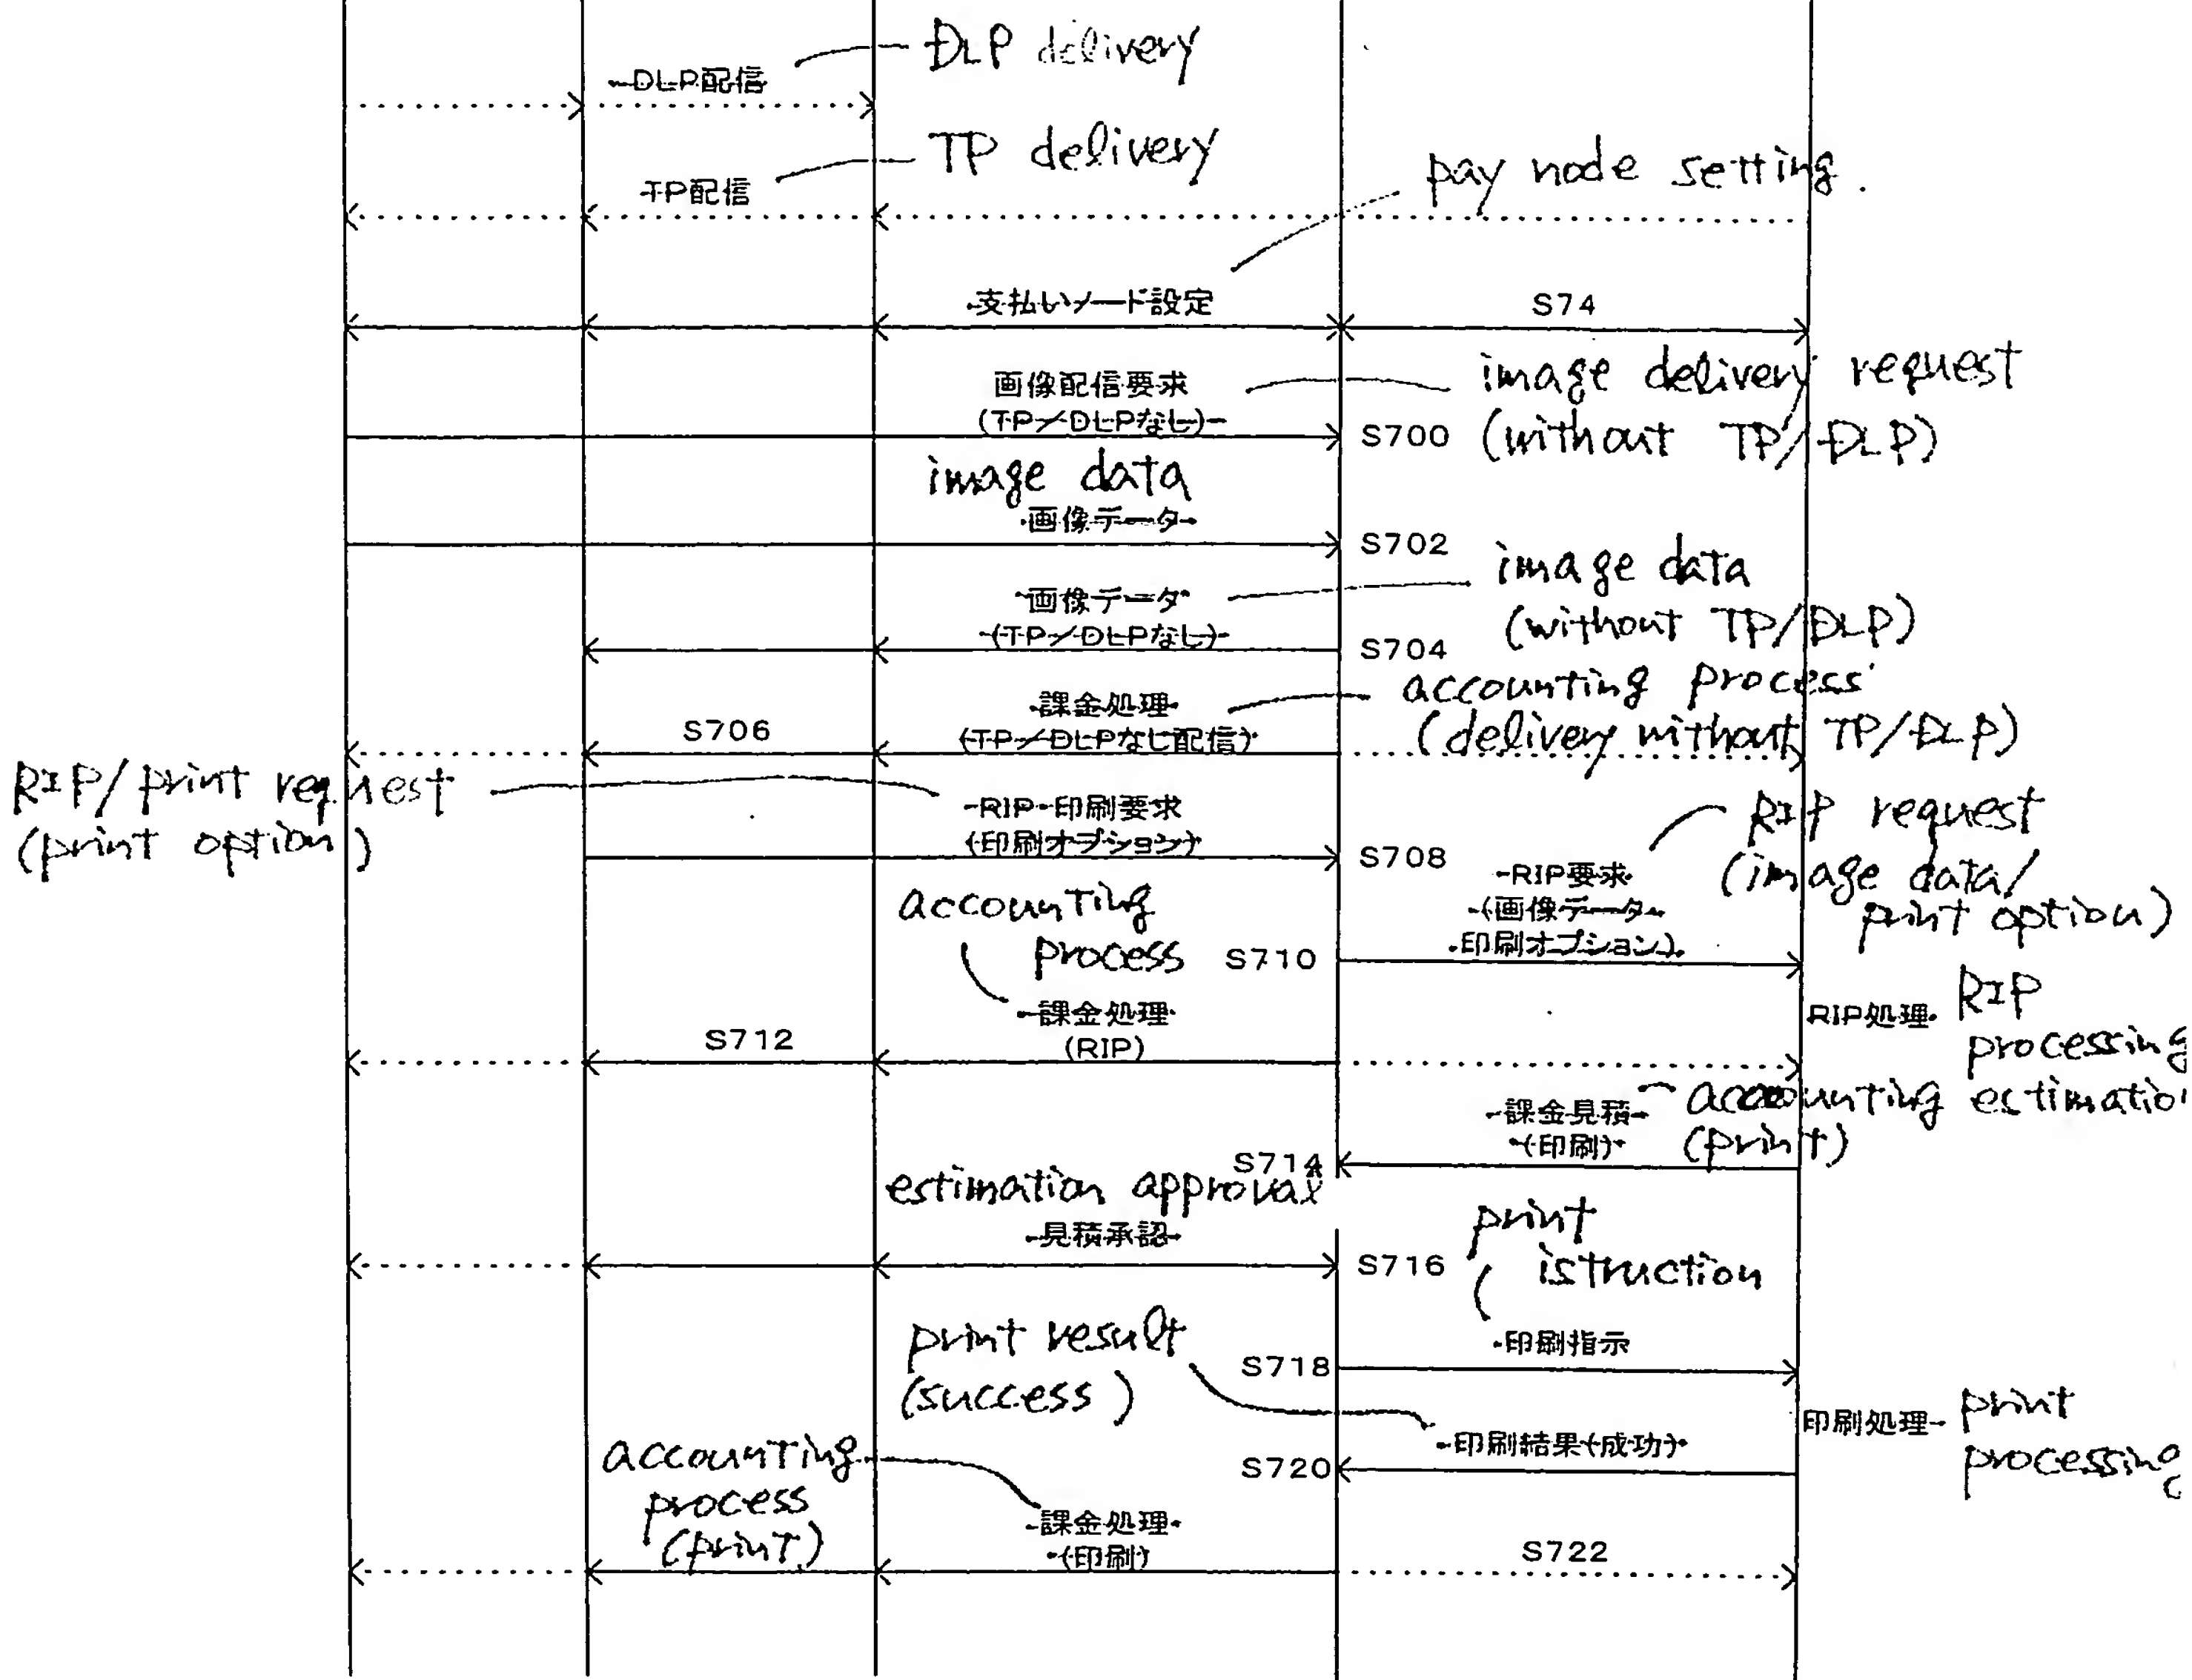 DLP delivery
DLP配信
TP delivery
TP配信
pay node setting.
支払いノード設定
S74
画像配信要求
(TP/DLPなし)
image delivery request
S700
(without TP/DLP)
image data
画像データ
S702
画像データ
(TP/DLPなし)
image data
(without TP/DLP)
S704
課金処理
(TP/DLPなし配信)
accounting process
(delivery without TP/DLP)
S706
RIP/print request
(print option)
RIP・印刷要求
(印刷オプション)
S708
RIP request
(image data/
print option)
RIP要求
(画像データ
印刷オプション)
S710
accounting
process
課金処理
(RIP)
S712
RIP処理
RIP
processing
課金見積
(印刷)
accounting estimatio
(print)
S714
estimation approval
見積承認
S716
print
istruction
印刷指示
S718
print result
(success)
印刷結果(成功)
S720
印刷処理
print
processing
accounting
process
(print)
課金処理
(印刷)
S722